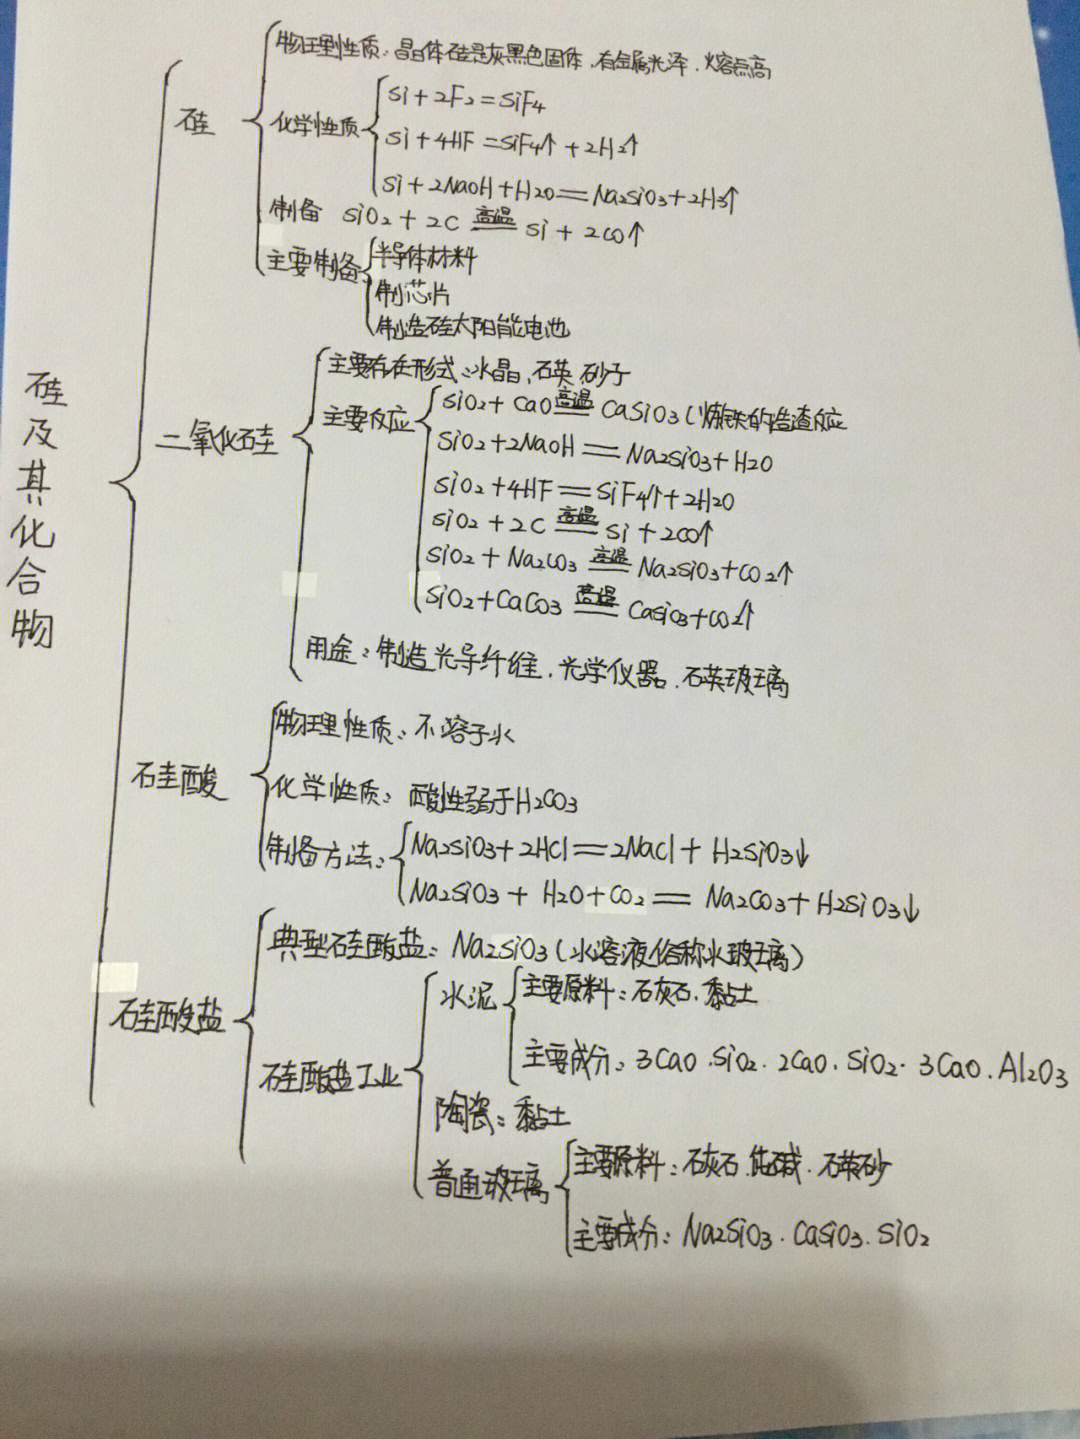 硅及其化合物
硅
物理性质：晶体硅是灰黑色固体、有金属光泽、熔点高
化学性质
Si+2F₂=SiF₄
Si+4HF=SiF₄↑+2H₂↑
Si+2NaOH+H₂O=Na₂SiO₃+2H₃↑
制备 SiO₂+2C 高温 Si+2CO↑
主要制备
半导体材料
制芯片
制造硅太阳能电池
二氧化硅
主要存在形式：水晶、石英、砂子
主要反应
SiO₂+CaO 高温 CaSiO₃(炼铁的造渣反应
SiO₂+2NaOH=Na₂SiO₃+H₂O
SiO₂+4HF=SiF₄↑+2H₂O
SiO₂+2C 高温 Si+2CO↑
SiO₂+Na₂CO₃ 高温 Na₂SiO₃+CO₂↑
SiO₂+CaCO₃ 高温 CaSiO₃+CO₂↑
用途：制造光导纤维、光学仪器、石英玻璃
硅酸
物理性质：不溶于水
化学性质：酸性弱于H₂CO₃
制备方法：
Na₂SiO₃+2HCl=2NaCl+H₂SiO₃↓
Na₂SiO₃+H₂O+CO₂=Na₂CO₃+H₂SiO₃↓
硅酸盐
典型硅酸盐：Na₂SiO₃(水溶液俗称水玻璃)
硅酸盐工业
水泥
主要原料：石灰石、黏土
主要成分：3CaO·SiO₂·2CaO·SiO₂·3CaO·Al₂O₃
陶瓷：黏土
普通玻璃
主要原料：石灰石、纯碱、石英砂
主要成分：Na₂SiO₃·CaSiO₃·SiO₂